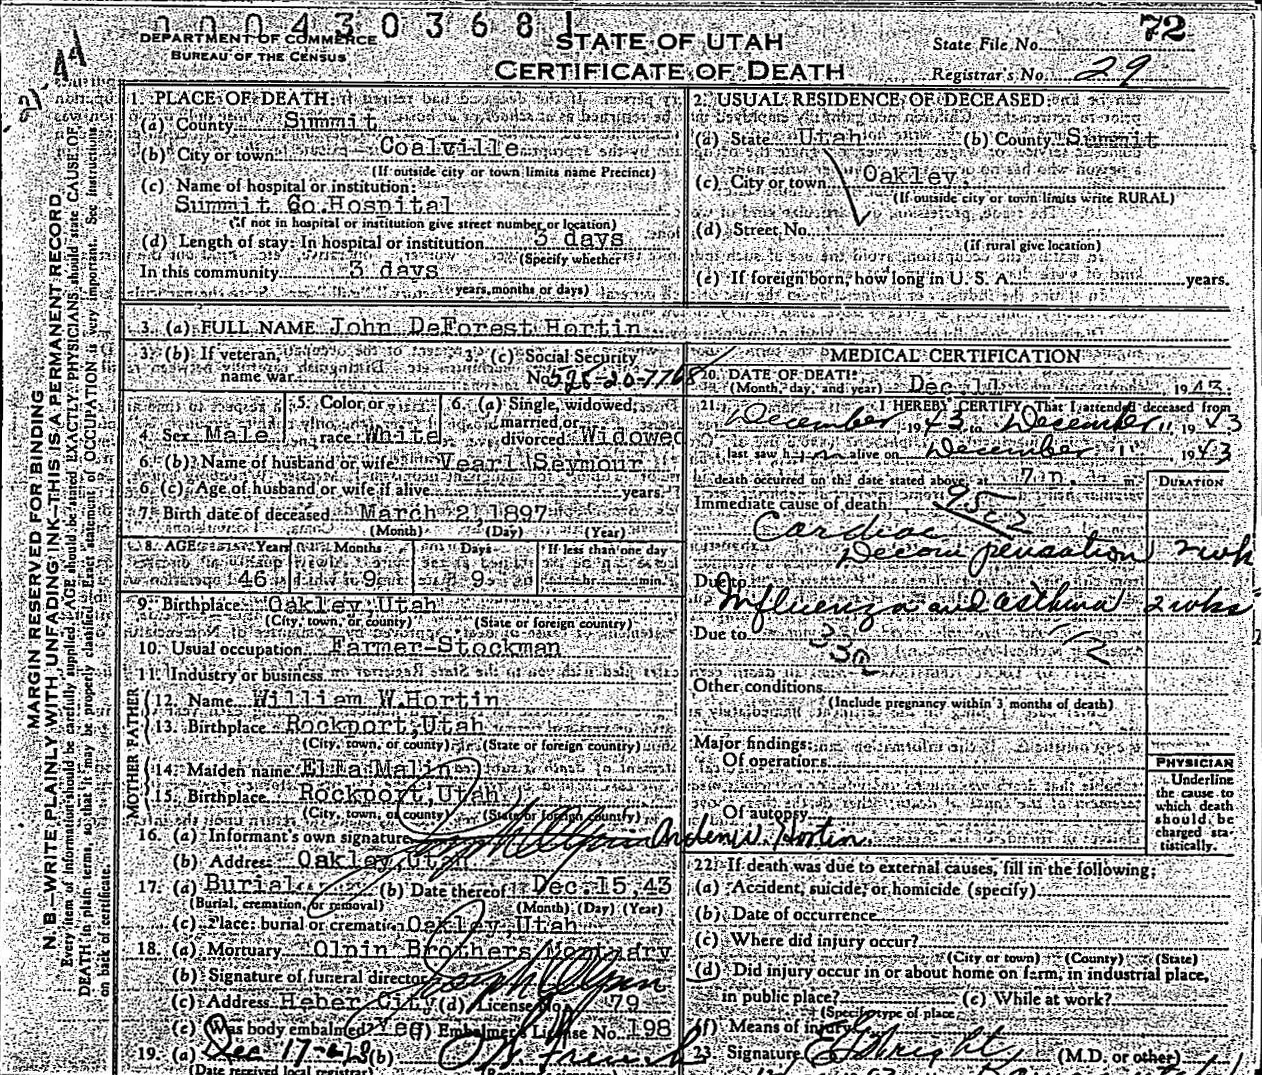 0004303681
72
DEPARTMENT OF COMMERCE
BUREAU OF THE CENSUS
STATE OF UTAH
CERTIFICATE OF DEATH
State File No.
Registrar's No. 29
MARGIN RESERVED FOR BINDING
N. B.—WRITE PLAINLY WITH UNFADING INK—THIS IS A PERMANENT RECORD
Every item of information should be carefully supplied. AGE should be stated EXACTLY. PHYSICIANS should state CAUSE OF
DEATH in plain terms, so that it may be properly classified. Exact statement of OCCUPATION is very important. See instructions
on back of certificate.
1. PLACE OF DEATH:
(a) County Summit
(b) City or town Coalville
(If outside city or town limits name Precinct)
(c) Name of hospital or institution:
Summit Co. Hospital
(if not in hospital or institution give street number or location)
(d) Length of stay: In hospital or institution 3 days
(Specify whether
In this community 3 days
years, months or days)
2. USUAL RESIDENCE OF DECEASED:
(a) State Utah (b) County Summit
(c) City or town Oakley,
(If outside city or town limits write RURAL)
(d) Street No.
(if rural give location)
(e) If foreign born, how long in U. S. A. years.
3. (a) FULL NAME John DeForest Hortin
3. (b) If veteran,
name war
3. (c) Social Security
No. 525-20-7768
4. Sex Male
5. Color or
race White
6. (a) Single, widowed,
married or
divorced Widowed
6. (b) Name of husband or wife Vearl Seymour
6. (c) Age of husband or wife if alive years
7. Birth date of deceased March 2, 1897
(Month) (Day) (Year)
8. AGE Years Months Days If less than one day
46 9 9 hr. min.
9. Birthplace Oakley, Utah
(City, town, or county) (State or foreign country)
10. Usual occupation Farmer-Stockman
11. Industry or business
FATHER
12. Name William W. Hortin
13. Birthplace Rockport, Utah
(City, town, or county) (State or foreign country)
MOTHER
14. Maiden name Etta Malin
15. Birthplace Rockport, Utah
(City, town, or county) (State or foreign country)
16. (a) Informant's own signature Arden W. Hortin
(b) Address Oakley, Utah
17. (a) Burial (b) Date thereof Dec. 15, 43
(Burial, cremation, or removal) (Month) (Day) (Year)
(c) Place: burial or cremation Oakley, Utah
18. (a) Mortuary Olpin Brothers Mortuary
(b) Signature of funeral director
(c) Address Heber City (d) License No. 79
(e) Was body embalmed? Yes (f) Embalmer's License No. 198
19. (a) Dec 17 (b)
(Date received local registrar)
MEDICAL CERTIFICATION
20. DATE OF DEATH:
(Month, day, and year) Dec. 11 1943.
21. I HEREBY CERTIFY, That I attended deceased from
December, 1943, to December 11, 1943
I last saw him alive on December 11, 1943
death occurred on the date stated above at 7 m.
DURATION
Immediate cause of death
Cardiac
Decompensation 2 wk
Due to
Influenza and asthma 2 wks
Due to 33a 112
Other conditions
(Include pregnancy within 3 months of death)
Major findings:
Of operations
Of autopsy
PHYSICIAN
Underline
the cause to
which death
should be
charged sta-
tistically.
22. If death was due to external causes, fill in the following:
(a) Accident, suicide, or homicide (specify)
(b) Date of occurrence
(c) Where did injury occur?
(City or town) (County) (State)
(d) Did injury occur in or about home on farm, in industrial place,
in public place? (e) While at work?
(Specify type of place)
(f) Means of injury
23. Signature Wright (M.D. or other)